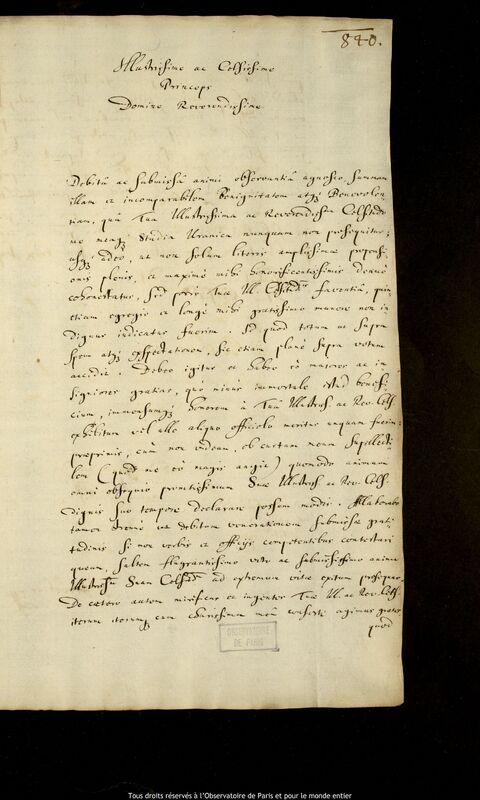 840.
Illustrissime ac Celsissime
Princeps
Domine Reverendissime.
Debitâ ac submissâ animi observantiâ agnosco, summam
illam et incomparabilem benignitatem atq; Benevolen-
tiam, quâ Tua Illustrissima ac Reverendiss. Celsitudo
me meaq; Studia Uranica nunquam non prosequitur;
usq; adeo, ut non solum literis amplissimæ propensi-
onis plenis, et maximè mihi honorificentissimis denuò
cohonestatus, sed pro Tuæ Ill. Celsitud. faventiâ, quin-
etiam egregio et longè mihi gratissimo munere non in-
dignus indicatus fuerim. Id quod totum ut supra
Spem atq; exspectationem, sic etiam planè supra votum
accidit. Debeo igitur et habeo eò majores ac in-
signiores gratias, quò minùs immortale istud benefi-
cium, immensumq; honorem à Tuâ Illustriss. ac Rev. Cels.
exhibitum vel ullo aliquo officiolo meritus unquam fuerim;
præprimis, cum non videam, ob curtam meam supellecti-
lem (quod me eò magis angit) quomodo animum
omni obsequio promtissimum Suæ Illustriss. ac Rev. Cels.
dignis suo tempore declarare possem modis. Allaborabo
tamen demò ut debitum venerationem submissæ grati-
tudinis si non verbis et officiis competentibus contestari
queam, saltem flagrantissimo voto ac submississimo animo
Illustriss. Suam Celsitud. ad extremum vitæ exitum prosequar.
De cætero autem mirificas et ingentes Tuæ Ill. ac Rev. Cels.
iterum iterumq; cum charissima meâ consorte agimus grates
quod
OBSERVATOIRE
DE PARIS
Tous droits réservés à l'Observatoire de Paris et pour le monde entier